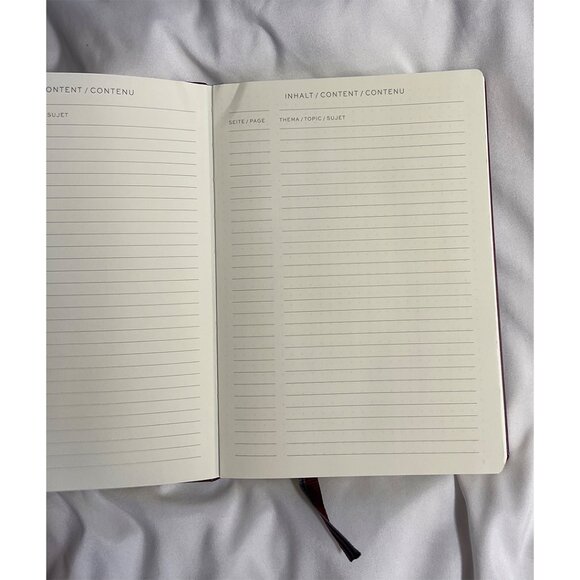 ONTENT / CONTENU
SUJET
INHALT / CONTENT / CONTENU
SEITE / PAGE THEMA / TOPIC / SUJET